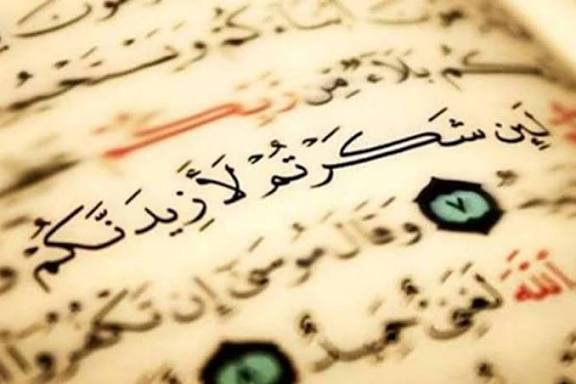 وَيَسْتَحْيُ
كُم بَلَآءٌ مِّن رَّبِّكُ
لَئِن شَكَرْتُمْ لَأَزِيدَنَّكُمْ
٧ وَقَالَ مُوسَىٰ إِن تَكْفُرُوٓا
ٱللَّهَ لَغَنِىٌّ حَمِيدٌ ٨